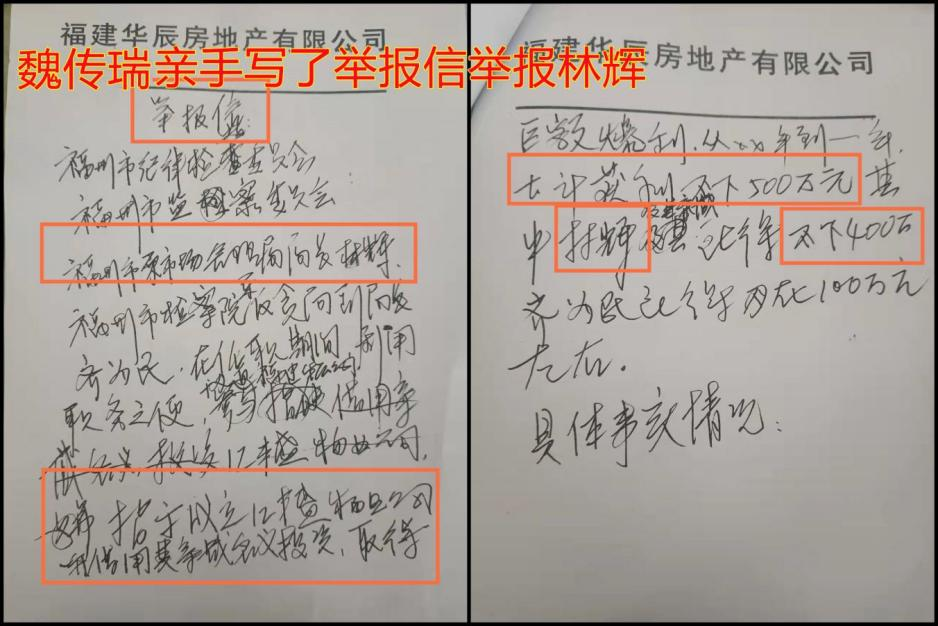 魏传瑞亲手写了举报信举报林辉
福建华辰房地产有限公司
举报信:
福州市纪律检查委员会
福州市监察委员会
福州市市场管理局局长林辉,
福州市检察院反贪局副局长
齐为民,在任职期间,利用
职务之便,借用亲
戚名义投资汇盛物业公司,
指示成立汇盛物业公司
并借用其亲戚名义投资,取得
福建华辰房地产有限公司
巨额暴利,从××年到一年,
共计获利不下500万元其
中林辉及其亲戚必得不下400万
齐为民必得力在100万元
左右.
具体事实情况: